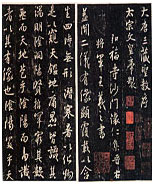 大唐三藏聖教序
太宗文皇帝製
弘福寺沙門懷仁集晉
右將軍王羲之書
蓋聞二儀有像顯覆載以含
生四時無形潛寒暑以化物
是以窺天鑑地庸愚皆識其
端明陰洞陽賢哲罕窮其數
然而天地苞乎陰陽而易識
者以其有像也陰陽處乎天